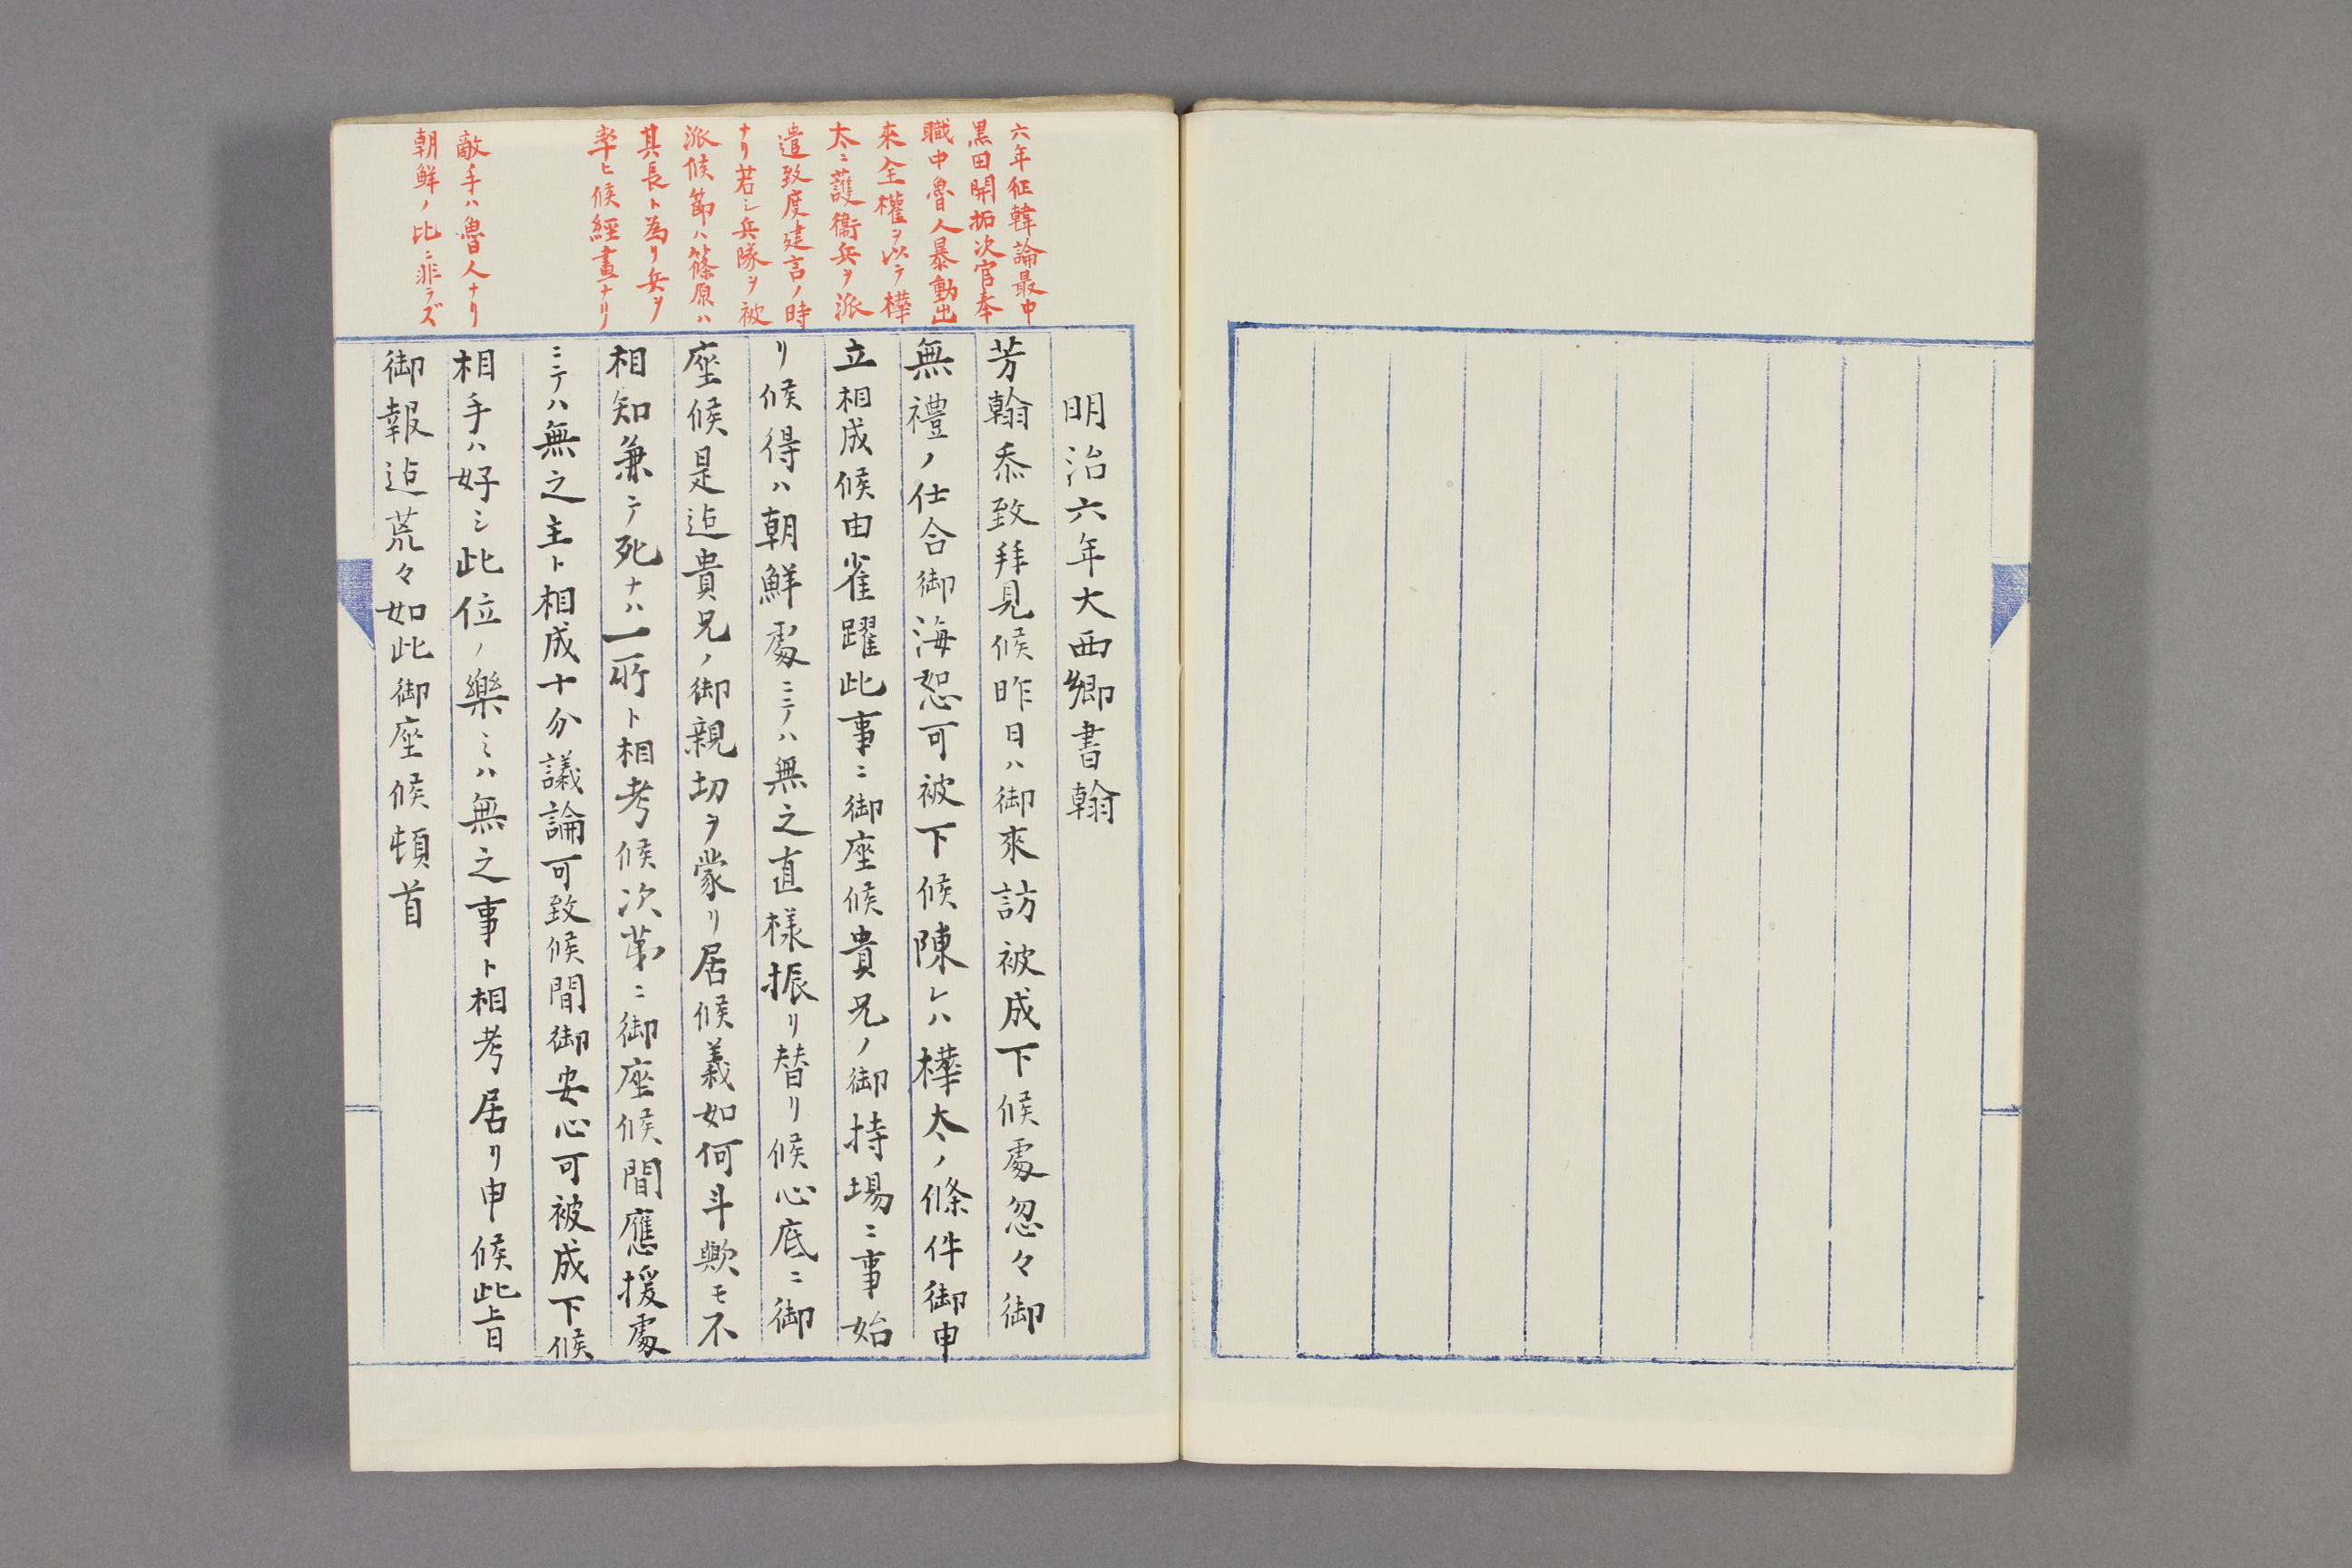 六年征韓論最中
黒田開拓次官奉
職中魯人暴動出
來全權ヲ以テ樺
太ニ護衞兵ヲ派
遣致度建言ノ時
ナリ若シ兵隊ヲ被
派候節ハ篠原ハ
其長ト為リ兵ヲ
率ヒ候經畫ナリ
敵手ハ魯人ナリ
朝鮮ノ比ニ非ラズ
明治六年大西郷書翰
芳翰忝致拜見候昨日ハ御來訪被成下候處忽々御
無禮ノ仕合御海恕可被下候陳レハ樺太ノ條件御申
立相成候由雀躍此事ニ御座候貴兄ノ御持場ニ事始
リ候得ハ朝鮮處ニテハ無之直樣振リ替リ候心底ニ御
座候是迠貴兄ノ御親切ヲ蒙リ居候義如何斗歟モ不
相知兼テ死ナハ一所ト相考候次第ニ御座候間應援處
ニテハ無之主ト相成十分議論可致候間御安心可被成下候
相手ハ好シ此位ノ樂ミハ無之事ト相考居リ申候此上旨
御報迠荒々如此御座候頓首